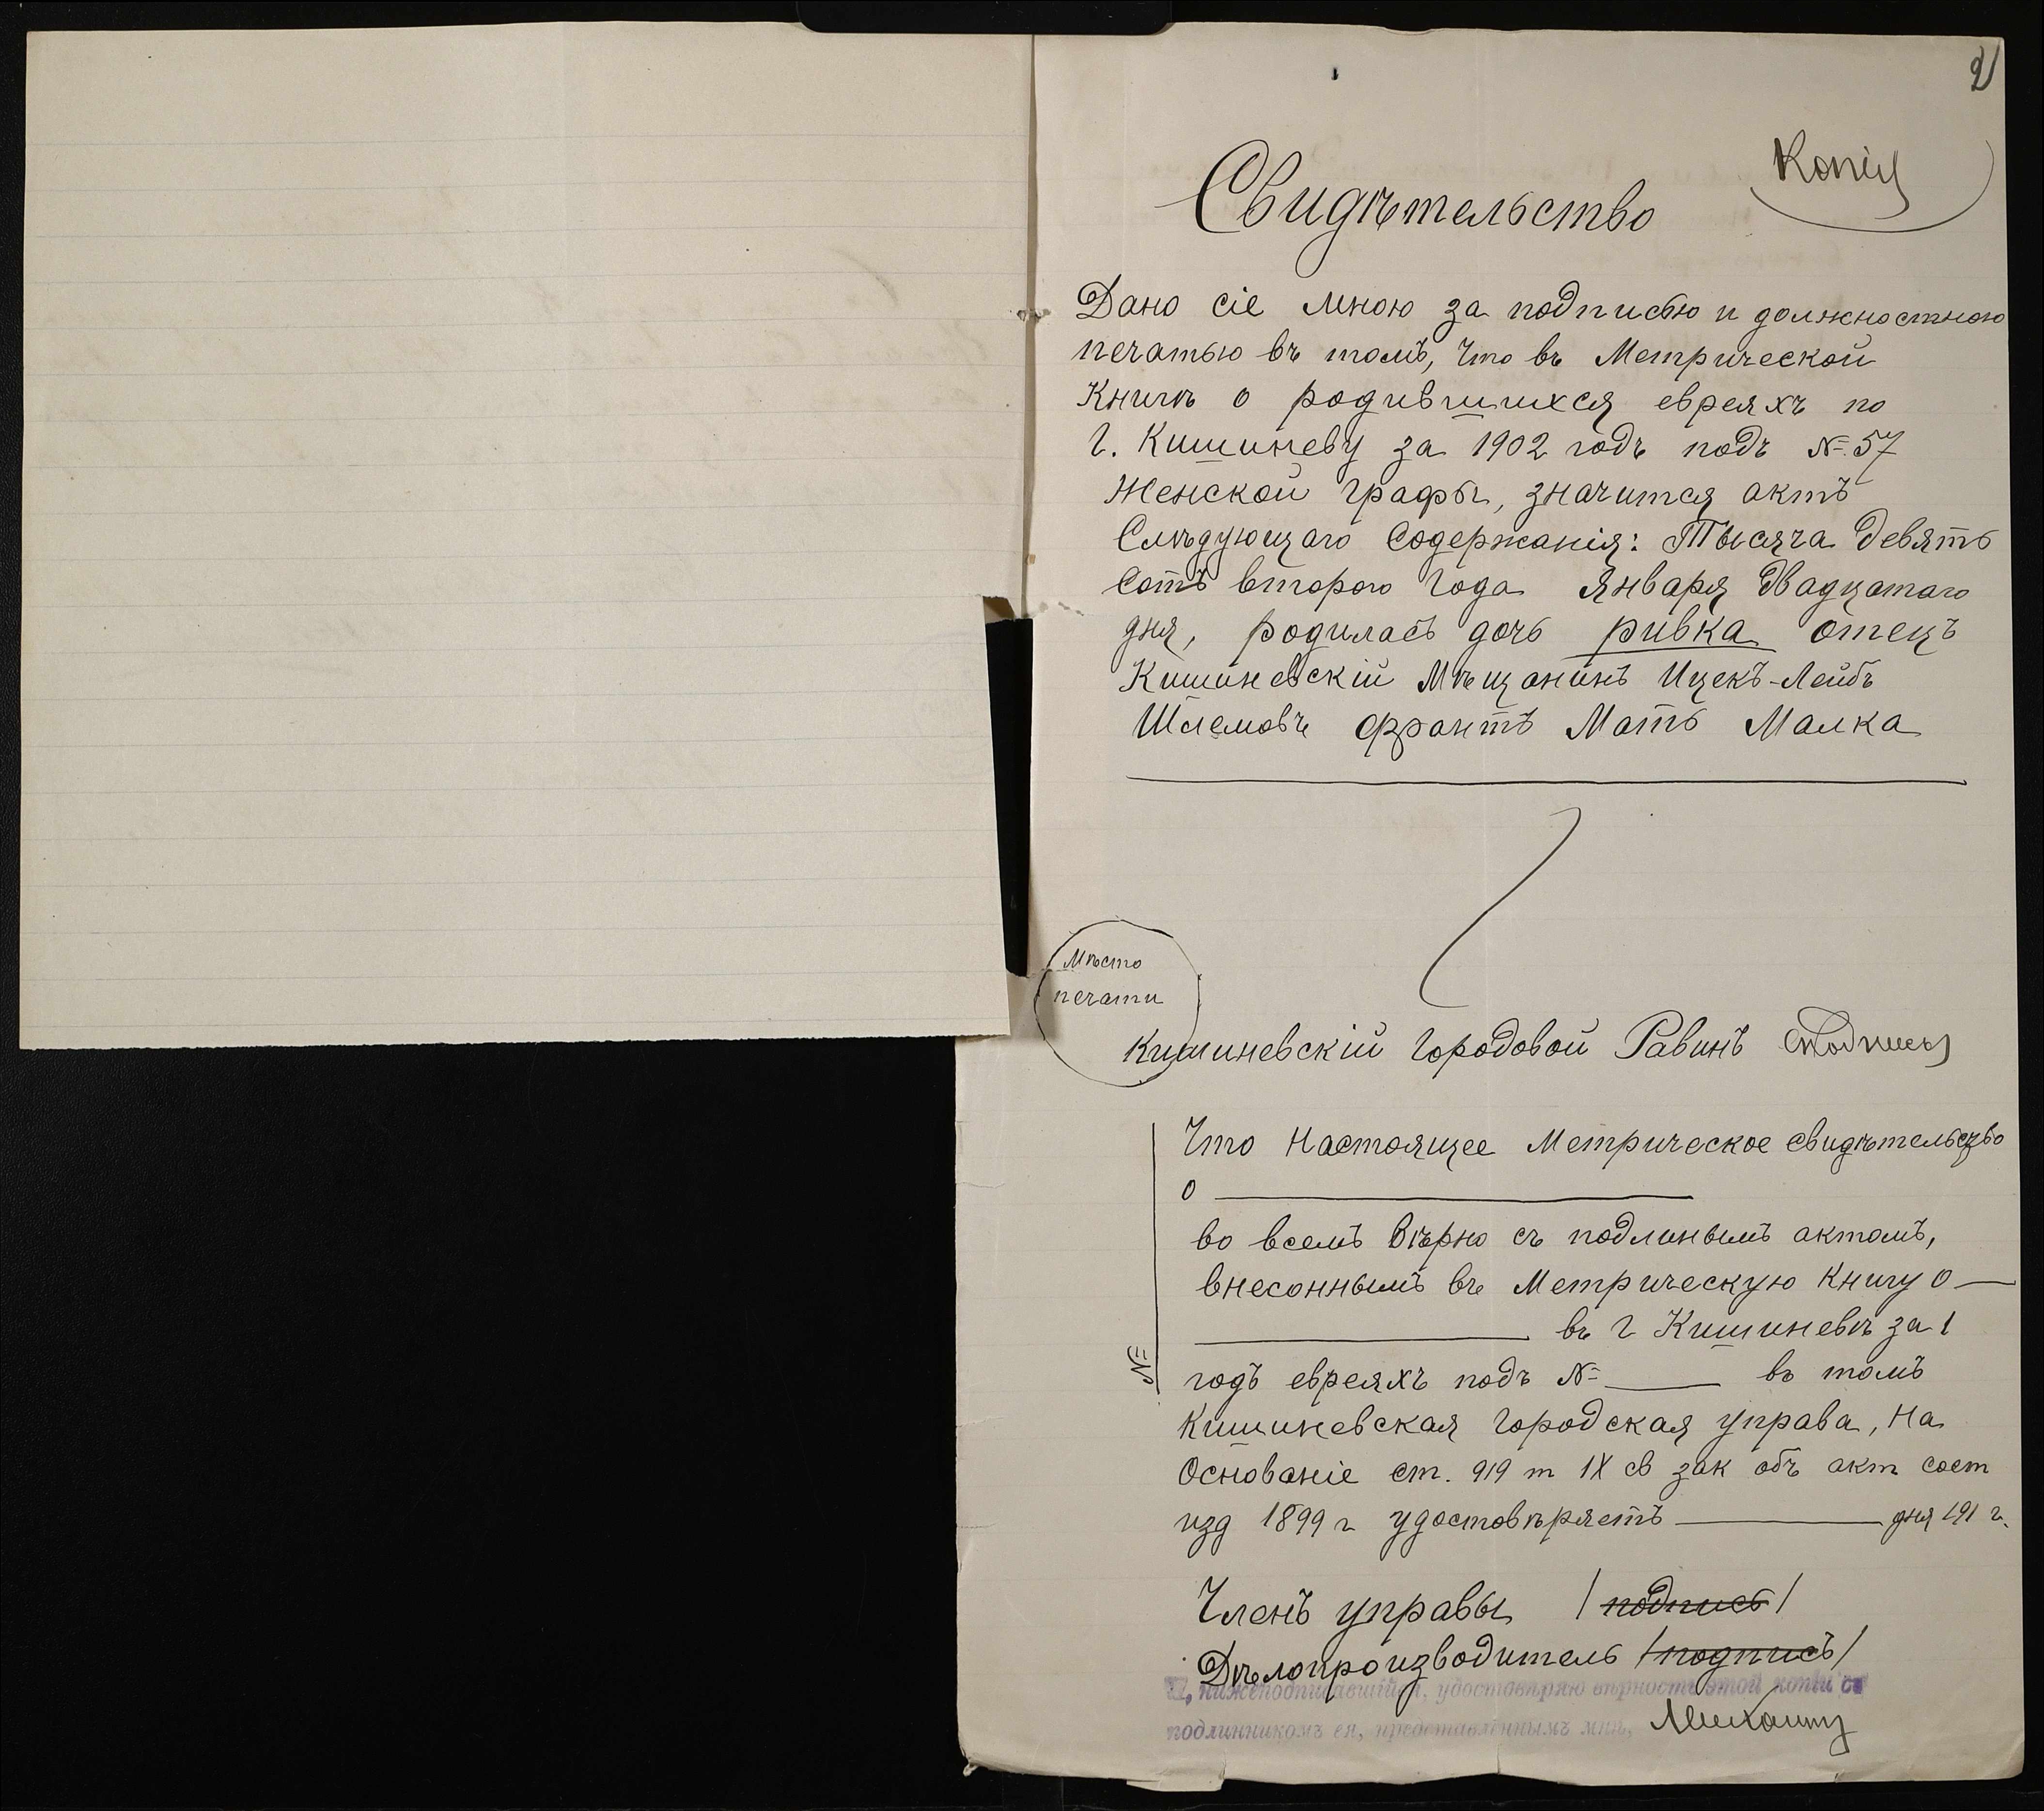 2
Копія
Свидѣтельство
Дано сіе мною за подписью и должностною
печатью въ томъ, что въ Метрической
Книгѣ о родившихся евреяхъ по
г. Кишиневу за 1902 годъ подъ № 57
Женской графы, значится актъ
Слѣдующаго Содержанія: Тысяча девять
сотъ второго года Января двадцатаго
дня, родилась дочь ривка отецъ
Кишиневскій Мѣщанинъ Ицекъ-Лейбъ
Шлемовъ Франтъ Мать Малка
Мѣсто
печати
Кишиневскій Городовой Равинъ (подпись)
Что настоящее Метрическое свидѣтельство
о
во всемъ вѣрно съ подлинымъ актомъ,
внесоннымъ въ Метрическую Книгу о
въ г Кишиневѣ за 1
годъ евреяхъ подъ № въ томъ
№
Кишиневская городская управа, на
Основаніе ст. 919 т IX св зак объ акт сост
изд 1899 г удостовѣряетъ дня 191 г.
Членъ управы /подпись/
Дѣлопроизводитель /подпись/
Я, нижеподписавшійся, удостовѣряю вѣрность этой копіи съ
подлинникомъ ея, представленнымъ мнѣ,